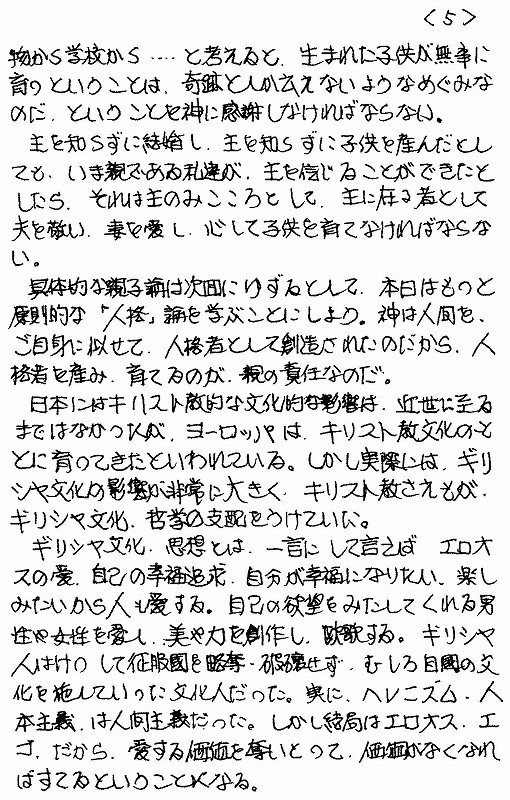 <5>
物から学校から……と考えると、生まれた子供が無事に
育つということは、奇跡としか云えないようなめぐみな
のだ、ということを神に感謝しなければならない。
主を知らずに結婚し、主を知らずに子供を産んだとし
ても、いま親である私達が、主を信じることができたと
したら、それは主のみこころとして、主に在る者として
夫を敬い、妻を愛し、心して子供を育てなければならな
い。
具体的な親子論は次回にゆずるとして、本日はもっと
原則的な「人格」論を学ぶことにしよう。神は人間を、
ご自身に似せて、人格者として創造されたのだから、人
格者を産み、育てるのが、親の責任なのだ。
日本にはキリスト教的な文化的な影響は、近世に至る
まではなかったが、ヨーロッパは、キリスト教文化のも
とに育ってきたといわれている。しかし実際には、ギリ
シヤ文化の影響が非常に大きく、キリスト教さえもが、
ギリシヤ文化、哲学の支配をうけていた。
ギリシヤ文化、思想とは、一言にして言えば エロオ
スの愛、自己の幸福追求、自分が幸福になりたい、楽し
みたいから人も愛する。自己の欲望をみたしてくれる男
性や女性を愛し、美や力を創作し、謳歌する。ギリシヤ
人はけっして征服国を略奪、破壊せず、むしろ自国の文
化を施していった文化人だった。実に、ヘレニズム、人
本主義、は人間主義だった。しかし結局はエロオス、エ
ゴ、だから、愛する価値を奪いとって、価値がなくなれ
ばすてるということになる。